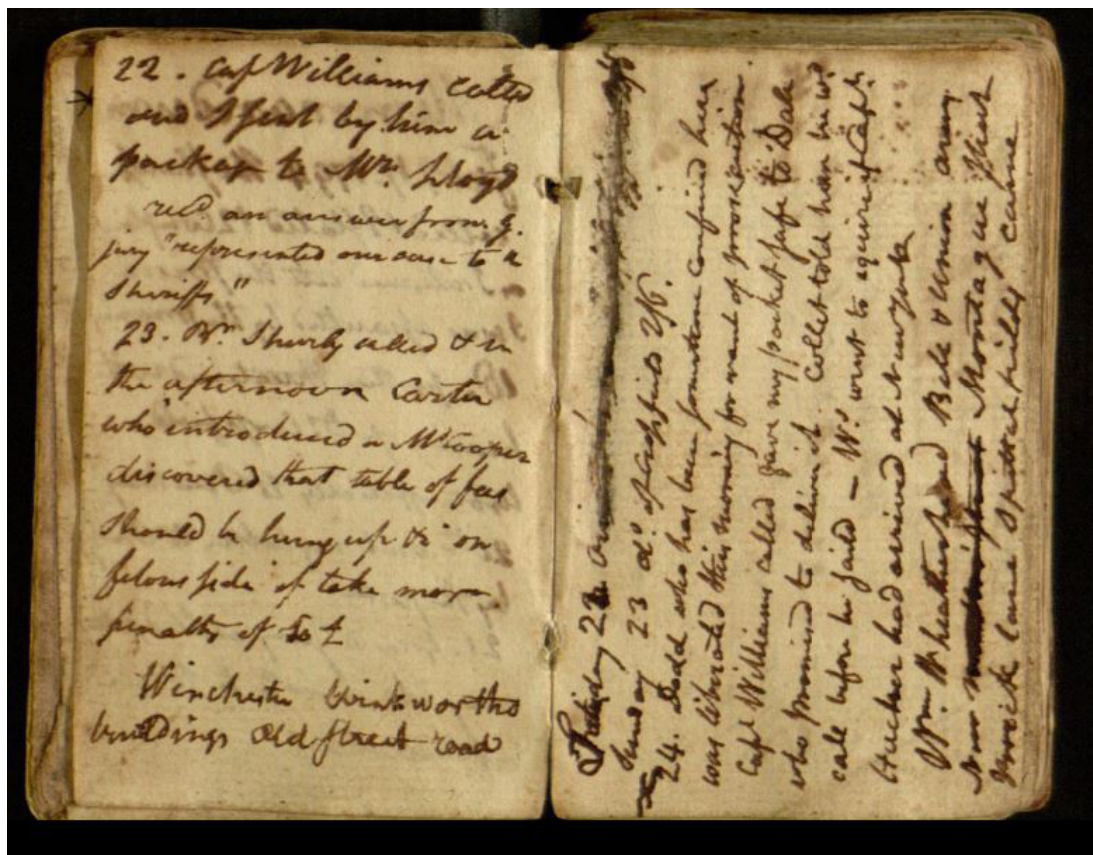 22. Cap Williams called
and I sent by him a
packet to Mr. Lloyd
recd. an answer from G.
jury "represented our case to the
Sheriffs"
23. Mr. Shurly called & in
the afternoon Carter
who introduced a Mr Cooper
discovered that table of fees
should be hung up & on
felons side if take more
penalty of 50 £
Winchester Winkworths
buildings Old Street road
Friday 22
Sunday 23 do. of Cropfields
24. Dodd who has been fourteen confined here
was liberated this morning for want of prosecution.
Capt Williams called gave my packet safe to Dale
who promised to deliver it. Collet told him he wd
call before he said — Wms. went to enquire if Capt.
Hucker had arrived at Newyork
Wm Weatherhead Bell & Union away
now Montague Street
Brick lane Spittlefields came